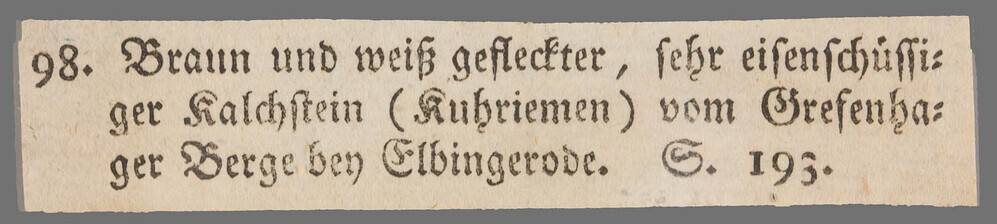 98. Braun und weiß gefleckter, sehr eisenschüssi⸗
ger Kalchstein (Kuhriemen) vom Grefenha⸗
ger Berge bey Elbingerode. S. 193.